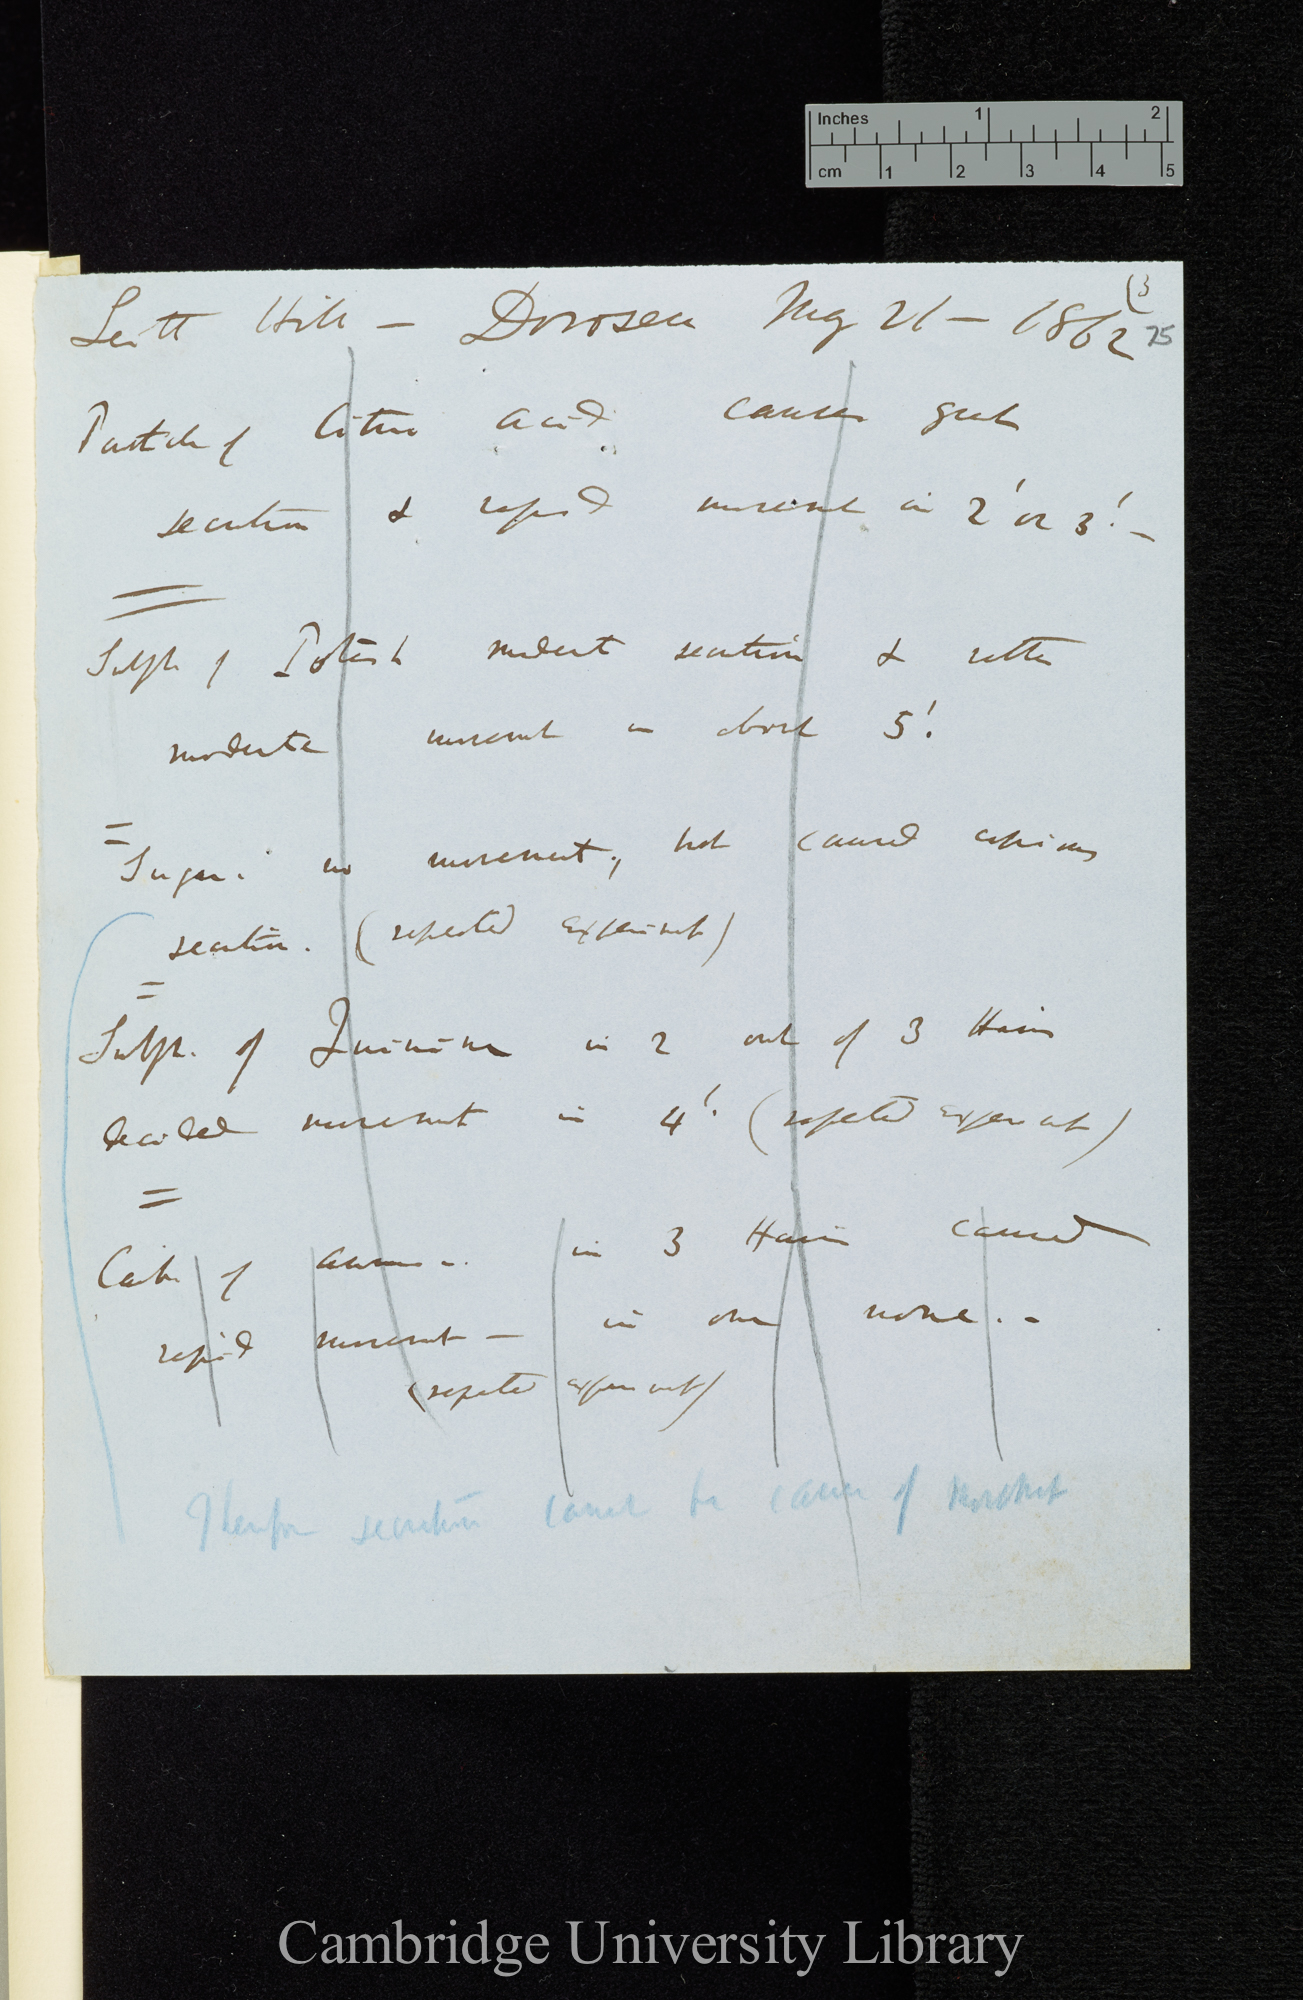 Inches 1 2
cm 1 2 3 4 5
(3
Leith Hill — Drosera May 21 — 1862 75
Particle of Citric acid causes great
secretion & rapid movement in 2' or 3'. —
Sulph of Potash moderate secretion & rather
moderate movement in about 5'.
Sugar. no movement, but caused copious
secretion. (repeated experiment)
Sulph. of Quinine in 2 out of 3 Hairs
decided movement in 4'. (repeated experiment)
Carb. of ammon. in 3 Hairs caused
rapid movement — in one none. —
(repeated experiment)
Therefore secretion cannot be cause of movement
Cambridge University Library